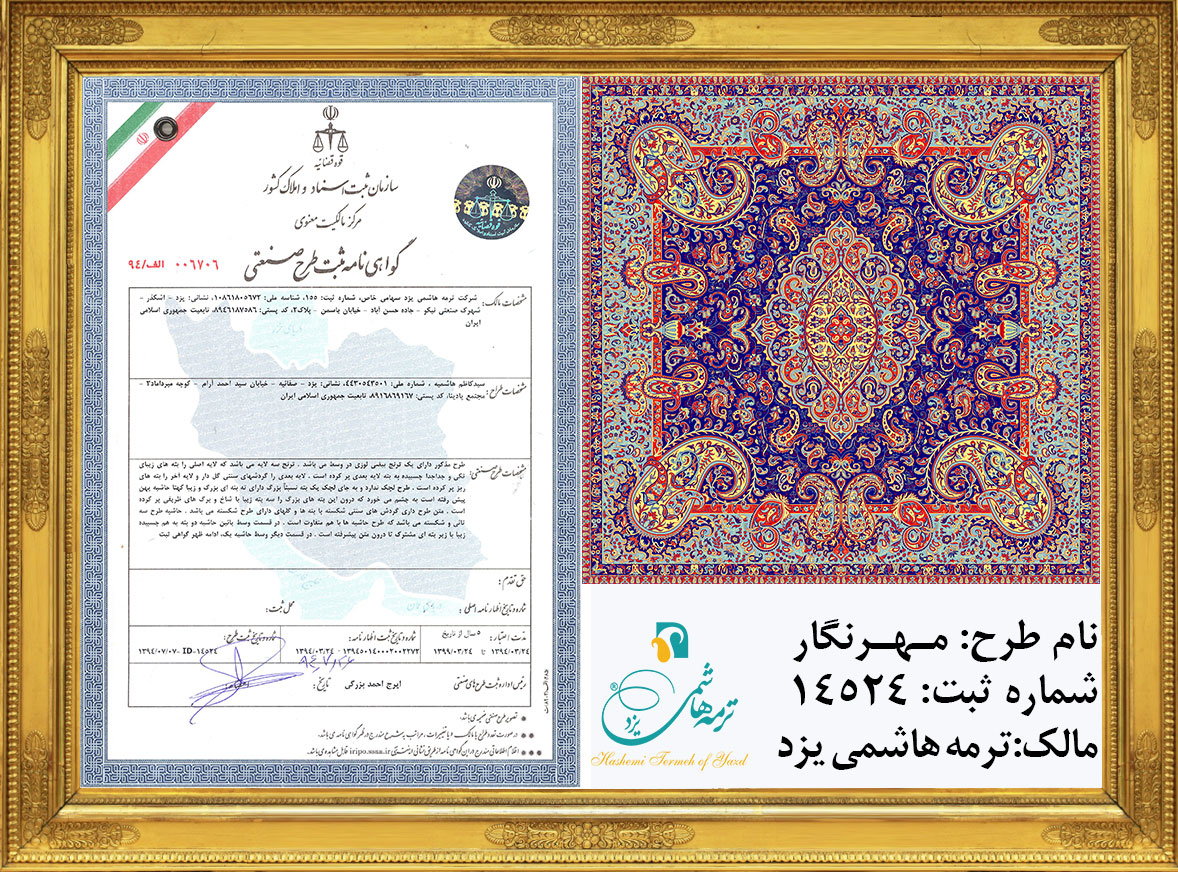 قوه قضائیه
سازمان ثبت اسناد و املاک کشور
مرکز مالکیت معنوی
گواهی نامه ثبت طرح صنعتی
۰۰۶۷۰۶ الف/۹۴
مشخصات مالک: شرکت ترمه هاشمی یزد سهامی خاص، شماره ثبت: ۱۵۵، شناسه ملی: ۱۰۸۶۱۸۰۵۶۷۲، نشانی: یزد - اشکذر -
شهرک صنعتی نیکو - جاده حسن آباد - خیابان یاسمن - پلاک۲، کد پستی: ۸۹۴۶۱۸۷۵۸۶، تابعیت جمهوری اسلامی
ایران
مشخصات طراح: سیدکاظم هاشمیه ، شماره ملی: ۴۴۳۰۵۴۳۵۰۱، نشانی: یزد - صفائیه - خیابان سید احمد آرام - کوچه میرداماد۲ -
مجتمع پادینا، کد پستی: ۸۹۱۶۸۶۹۱۶۷، تابعیت جمهوری اسلامی ایران
مشخصات طرح صنعتی: طرح مذکور دارای یک ترنج بیضی لوزی در وسط می باشد . ترنج سه لایه می باشد که لایه اصلی را بته های زیبای
تکی و جداجدا چسبیده به بته لایه بعدی پر کرده است . لایه بعدی را گردشهای سنتی گل دار و لایه آخر را بته های
ریز پر کرده است . طرح لچک ندارد و به جای لچک یک بته نسبتاً بزرگ دارای ته بته ای بزرگ و زیبا کهتا حاشیه پهن
پیش رفته است به چشم می خورد که درون این بته های بزرگ را سه بته زیبا با شاخ و برگ های ظریفی پر کرده
است . متن طرح داری گردش های سنتی شکسته با بته ها و گلهای دارای طرح شکسته می باشد . حاشیه طرح سه
تائی و شکسته می باشد که طرح حاشیه ها با هم متفاوت است . در قسمت وسط باتین حاشیه دو بته به هم چسبیده
زیبا با زیر بته ای مشترک تا درون متن پیشرفته است . در قسمت دیگر وسط حاشیه یک، ادامه ظهر گواهی ثبت
حق تقدم:
شماره و تاریخ اظهارنامه اصلی: محل ثبت:
مدت اعتبار: ۵ سال از تاریخ شماره و تاریخ ثبت اظهارنامه: شماره و تاریخ ثبت طرح:
۱۳۹۴/۰۳/۲۴ تا ۱۳۹۹/۰۳/۲۴ ۱۳۹۴۵۰۱۴۰۰۰۳۰۰۲۲۷۲ - ۱۳۹۴/۰۳/۲۴ ۱۴۵۲۴-ID -۱۳۹۴/۰۷/۰۷
رئیس اداره ثبت طرح های صنعتی ایرج احمد بزرگی تاریخ: امضاء:
تصویر طرح صنعتی ضمیمه می باشد.
در صورت تعدد طراح یا مالک و یا تغییرات ، مراتب به شرح مندرج در ظهر گواهی نامه می باشد.
اقلام اطلاعاتی مندرج در این گواهی نامه از طریق نشانی اینترنتی iripo.ssaa.ir قابل مشاهده می باشد.
نام طرح: مـهـرنگار
شماره ثبت: ۱۴۵۲۴
مالک:ترمه هاشمی یزد
ترمه هاشمی
یزد
®
Hashemi Termeh of Yazd